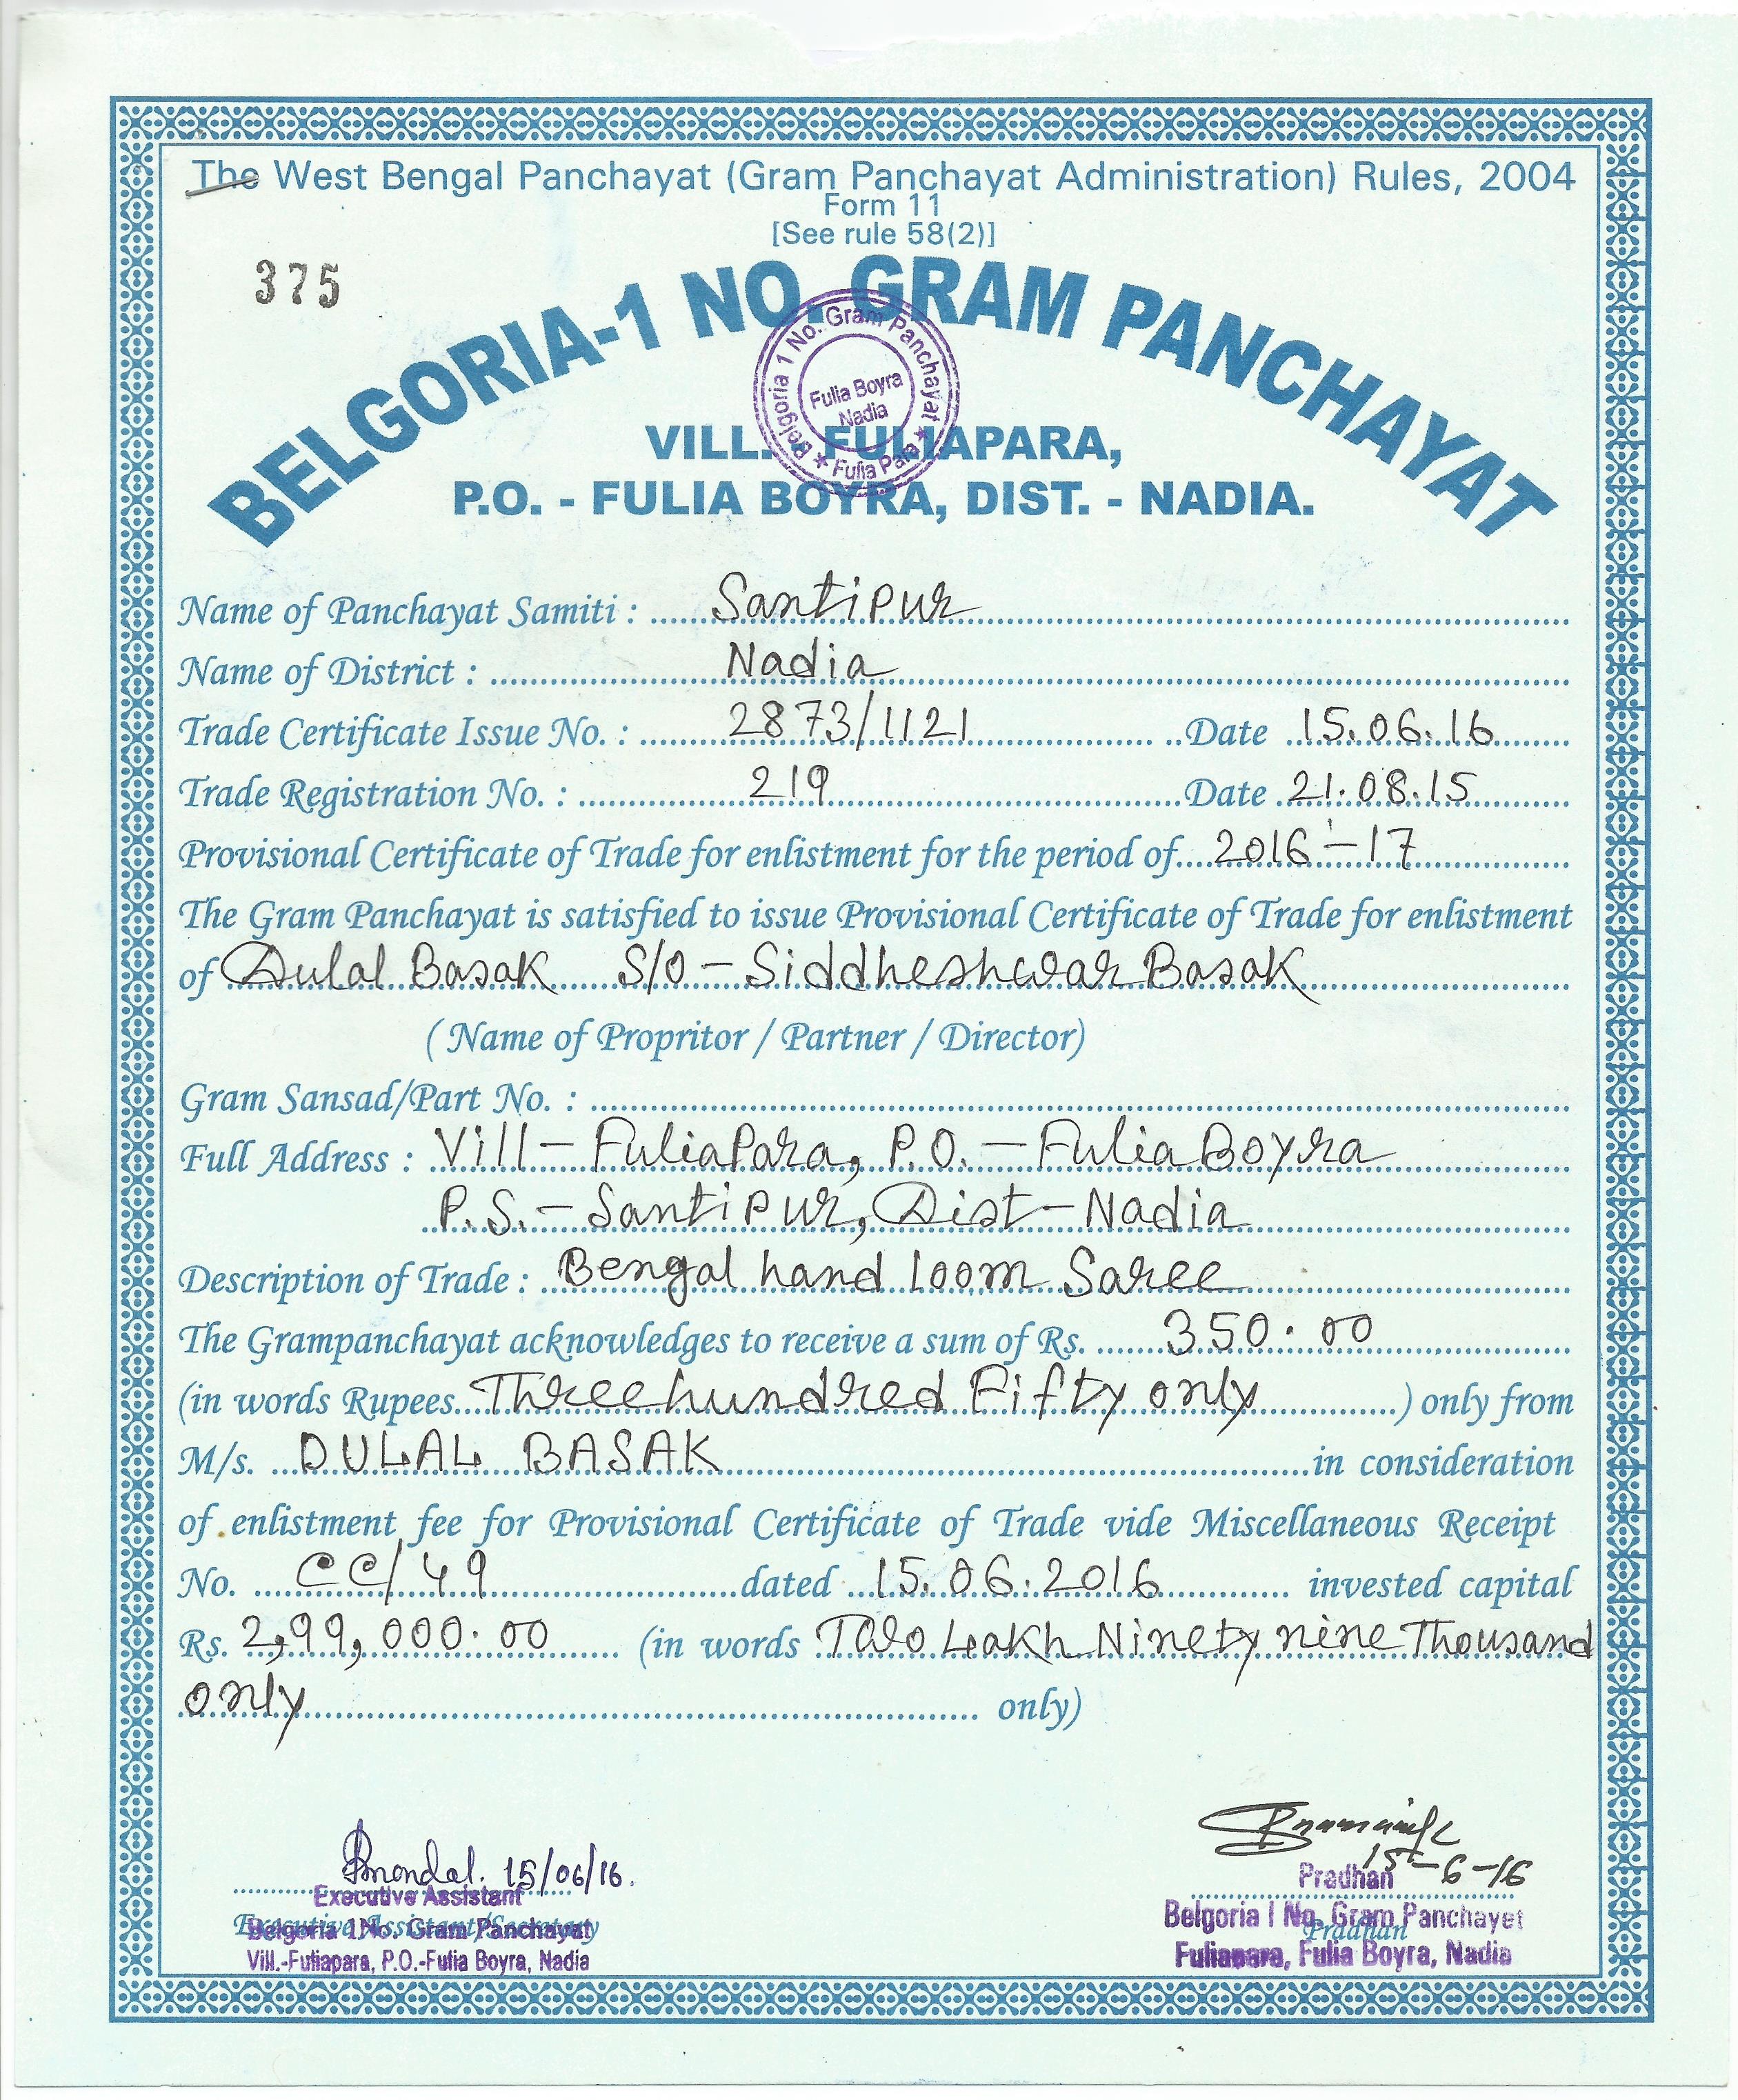 The West Bengal Panchayat (Gram Panchayat Administration) Rules, 2004
Form 11
[See rule 58(2)]
375
BELGORIA-1 NO. GRAM PANCHAYAT
Belgoria 1 No. Gram Panchayat ★ Fulia Para ★
Fulia Boyra
Nadia
VILL. - FULIAPARA,
P.O. - FULIA BOYRA, DIST. - NADIA.
Name of Panchayat Samiti : Santipur
Name of District : Nadia
Trade Certificate Issue No. : 2873/1121 Date 15.06.16
Trade Registration No. : 219 Date 21.08.15
Provisional Certificate of Trade for enlistment for the period of 2016-17
The Gram Panchayat is satisfied to issue Provisional Certificate of Trade for enlistment
of Dulal Basak S/O - Siddheshwar Basak
( Name of Propritor / Partner / Director)
Gram Sansad/Part No. :
Full Address : Vill - FuliaPara, P.O. - Fulia Boyra
P.S. - Santipur, Dist - Nadia
Description of Trade : Bengal hand loom Saree
The Grampanchayat acknowledges to receive a sum of Rs. 350.00
(in words Rupees Three hundred Fifty only ) only from
M/s. DULAL BASAK in consideration
of enlistment fee for Provisional Certificate of Trade vide Miscellaneous Receipt
No. CC/49 dated 15.06.2016 invested capital
Rs. 2,99,000.00 (in words Two Lakh Ninety nine Thousand
only only)
15/06/16.
Executive Assistant
Executive Assistant/Secretary
Belgoria 1 No. Gram Panchayat
Vill.-Fuliapara, P.O.-Fulia Boyra, Nadia
15-6-16
Pradhan
Belgoria 1 No. Gram Panchayet
Pradhan
Fuliapara, Fulia Boyra, Nadia